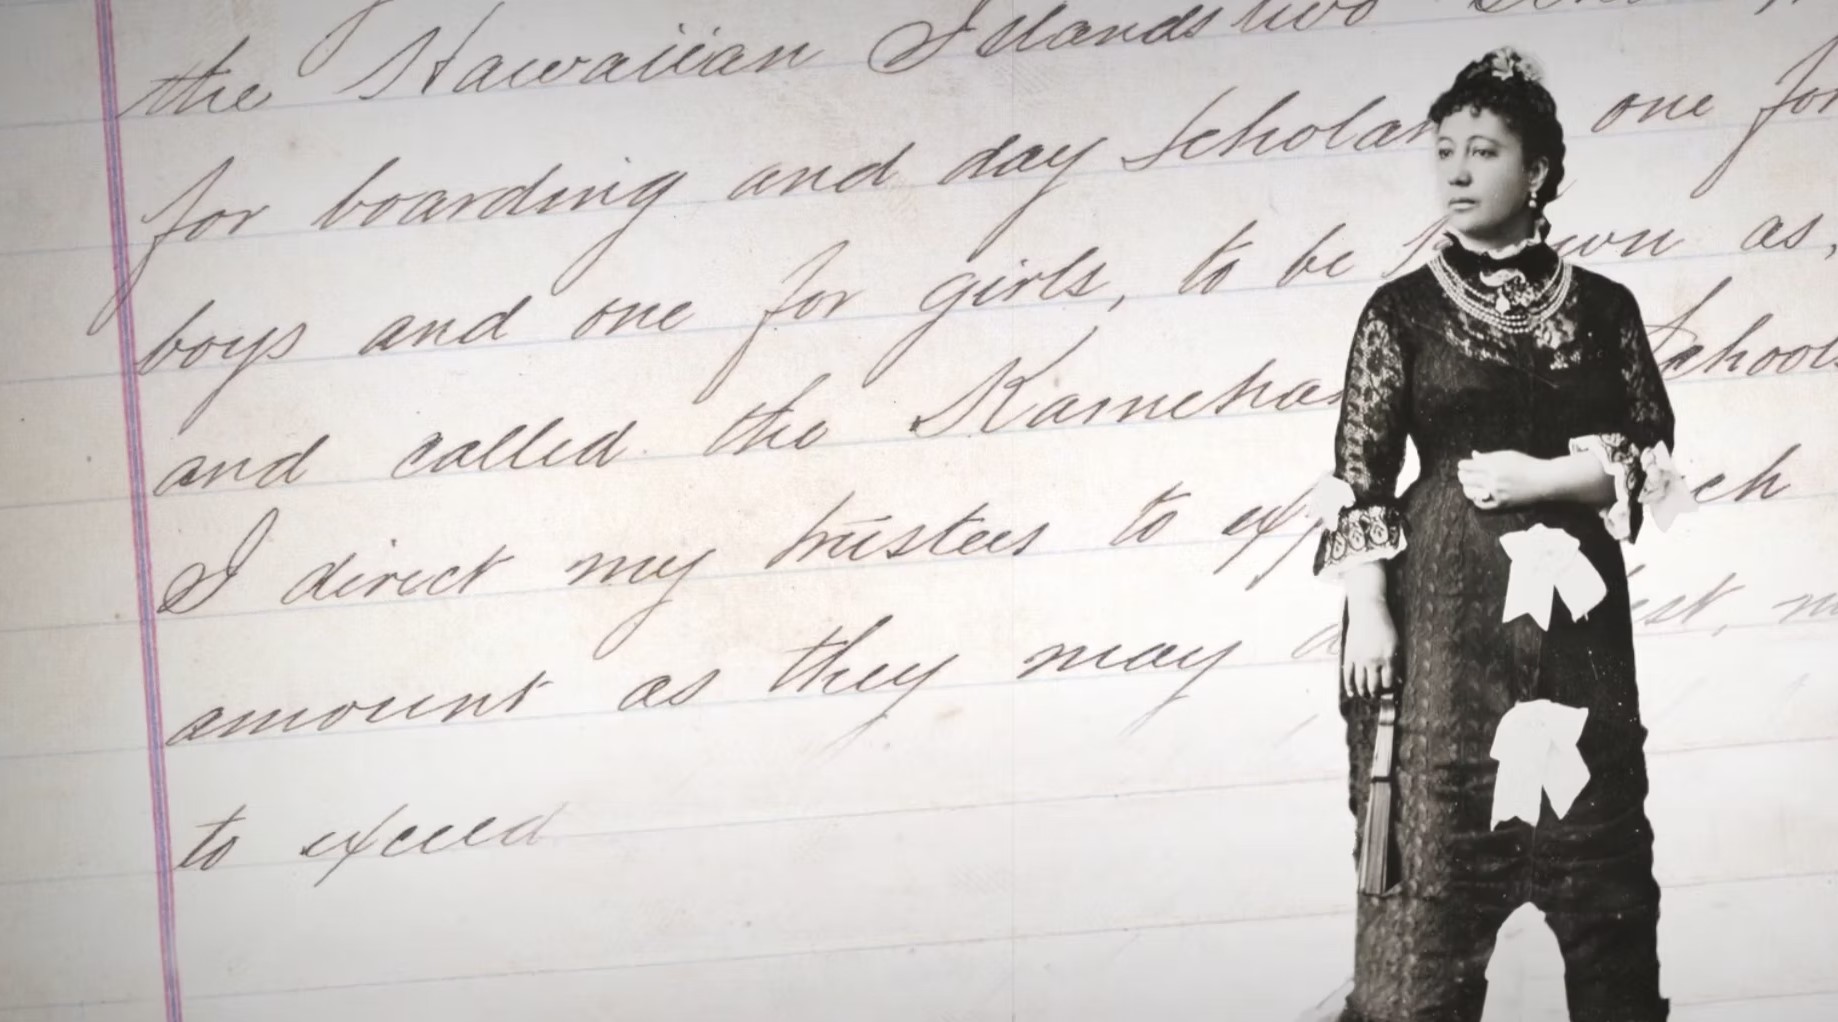 the Hawaiian Islands two
for boarding and day scholar one for
boys and one for girls, to be as,
and called the Kameha Schools
I direct my trustees to exp ch
amount as they may
to exceed